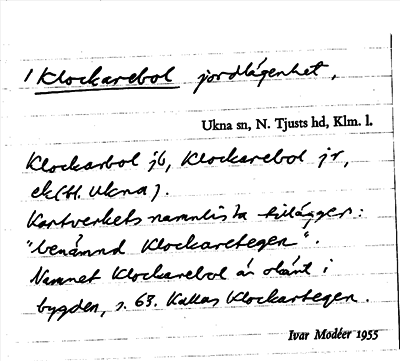 1 Klockarebol jordlägenhet,
Ukna sn, N. Tjusts hd, Klm. l.
Klockarbol jb, Klockarebol jr,
ek (H. Ukna).
Kartverkets namnlista tillägger:
"benämnd Klockaretegen".
Namnet Klockarebol är okänt i
bygden, s. 63. Kallas Klockartegen.
Ivar Modéer 1955